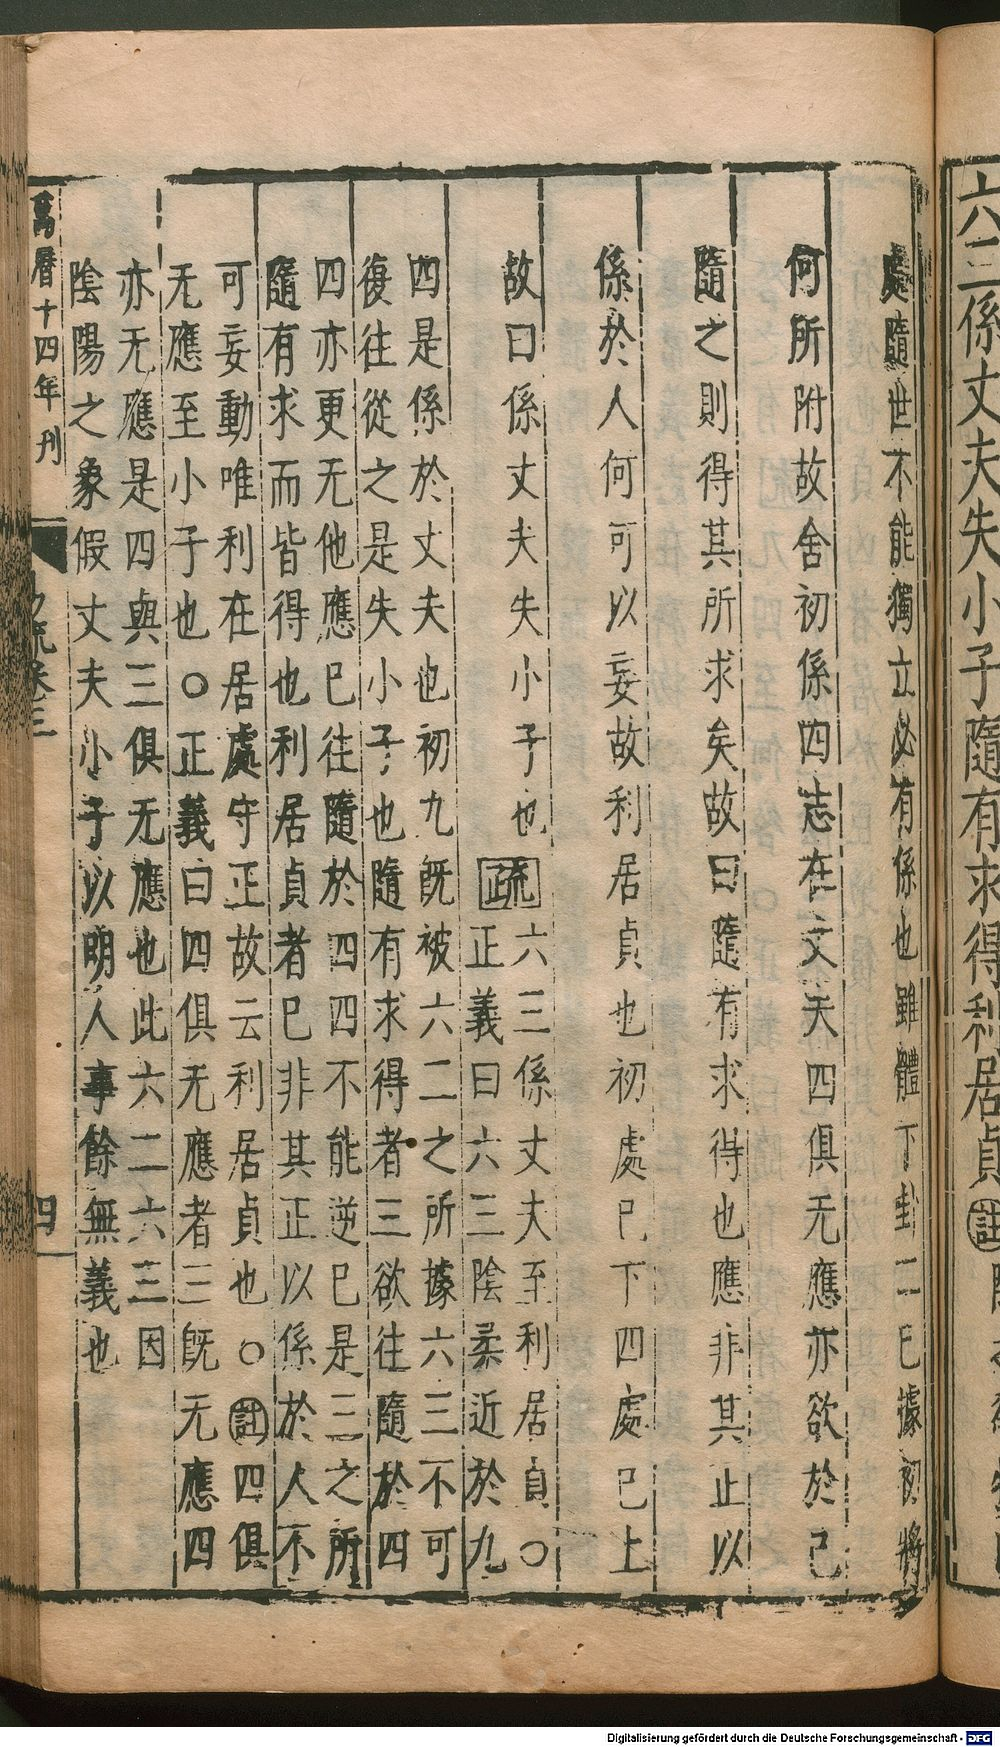 六三係丈夫失小子隨有求得利居貞註陰
處隨世不能獨立必有係也雖體下卦二已據初將
何所附故舍初係四志在丈夫四俱无應亦欲於己
隨之則得其所求矣故曰隨有求得也應非其止以
係於人何可以妄故利居貞也初處己下四處己上
故曰係丈夫失小子也疏六三係丈夫至利居貞○
正義曰六三陰柔近於九
四是係於丈夫也初九旣被六二之所據六三不可
復往從之是失小子也隨有求得者三欲往隨於四
四亦更无他應巳往隨於四四不能逆巳是三之所
隨有求而皆得也利居貞者巳非其正以係於人不
可妄動唯利在居處守正故云利居貞也○註四俱
无應至小子也○正義曰四俱无應者三旣无應四
亦无應是四與三俱无應也此六二六三因
陰陽之象假丈夫小子以明人事餘無義也
萬曆十四年刊
易疏卷三
四
Digitalisierung gefördert durch die Deutsche Forschungsgemeinschaft - DFG